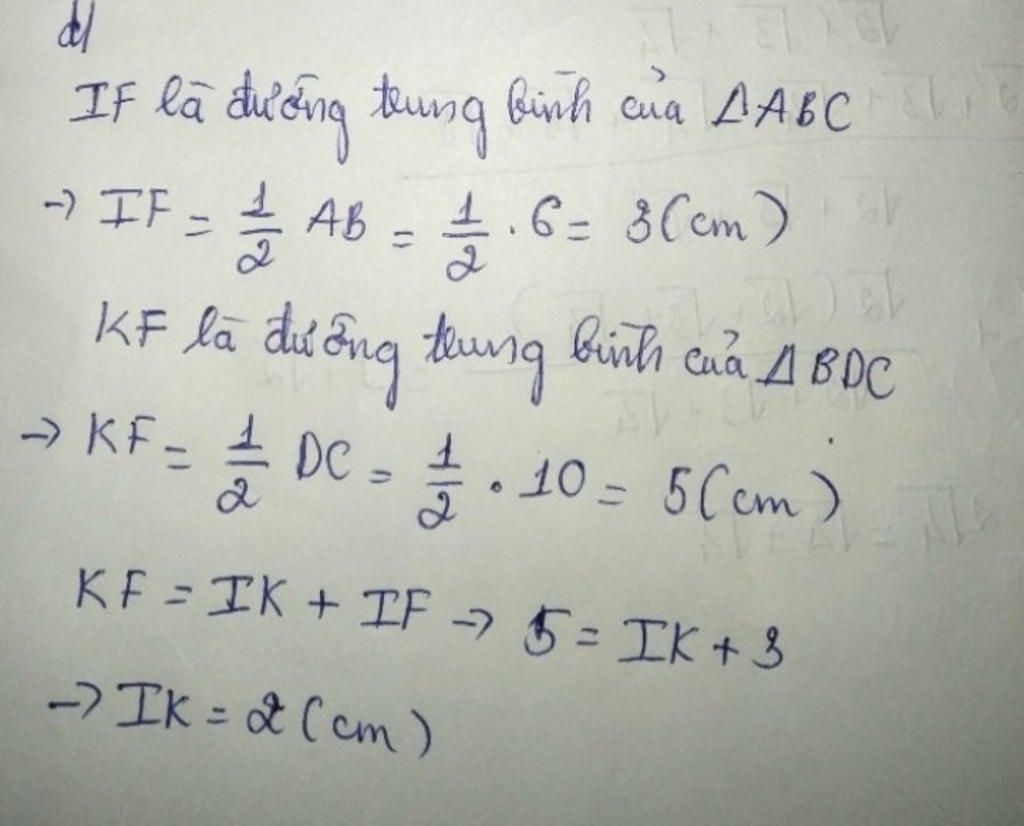 d)
IF là đường trung bình của ΔABC
→ IF = 1/2 AB = 1/2 . 6 = 3 (cm)
KF là đường trung bình của ΔBDC
→ KF = 1/2 DC = 1/2 . 10 = 5 (cm)
KF = IK + IF → 5 = IK + 3
→ IK = 2 (cm)